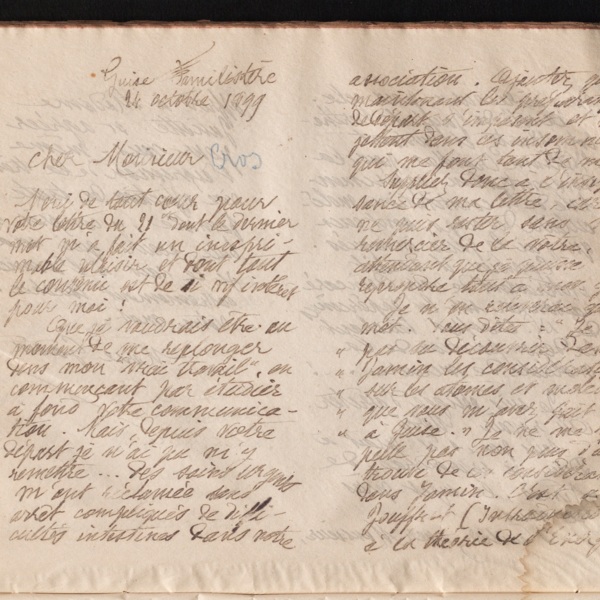 Guise Familistère
24 octobre 1899
Cher Monsieur Cros
Merci de tout cœur pour
votre lettre du 21 dont le dernier
mot m'a fait un inexpri-
mable plaisir, et dont tout
le contenu est de si vif intérêt
pour moi !
Que je voudrais être au
moment de me replonger
dans mon "vrai travail", en
commençant par étudier
à fond votre communica-
tion. Mais, depuis votre
départ je n'ai pu m'y
remettre... des soins urgents
m'ont réclamée sans
arrêt compliqués de diffi-
cultés intestines dans notre
association. Ajoutez
maintenant les
départ
jettent dans les insomnies
qui me font tant de
donc
sance de ma lettre. car
ne puis rester sans
remercier de la vôtre
attendant que je puisse
reprendre tout à mon
Je
mot. Vous dites : "Je
" pas su découvrir dans
" Jamin les considérations
" sur les atomes et
" que vous m'avez
" à Guise." Je ne me
pelle pas non plus
trouvé de ces considérations
dans Jamin. C'est
Jouffret (Introduction
à la théorie de l'Énergie